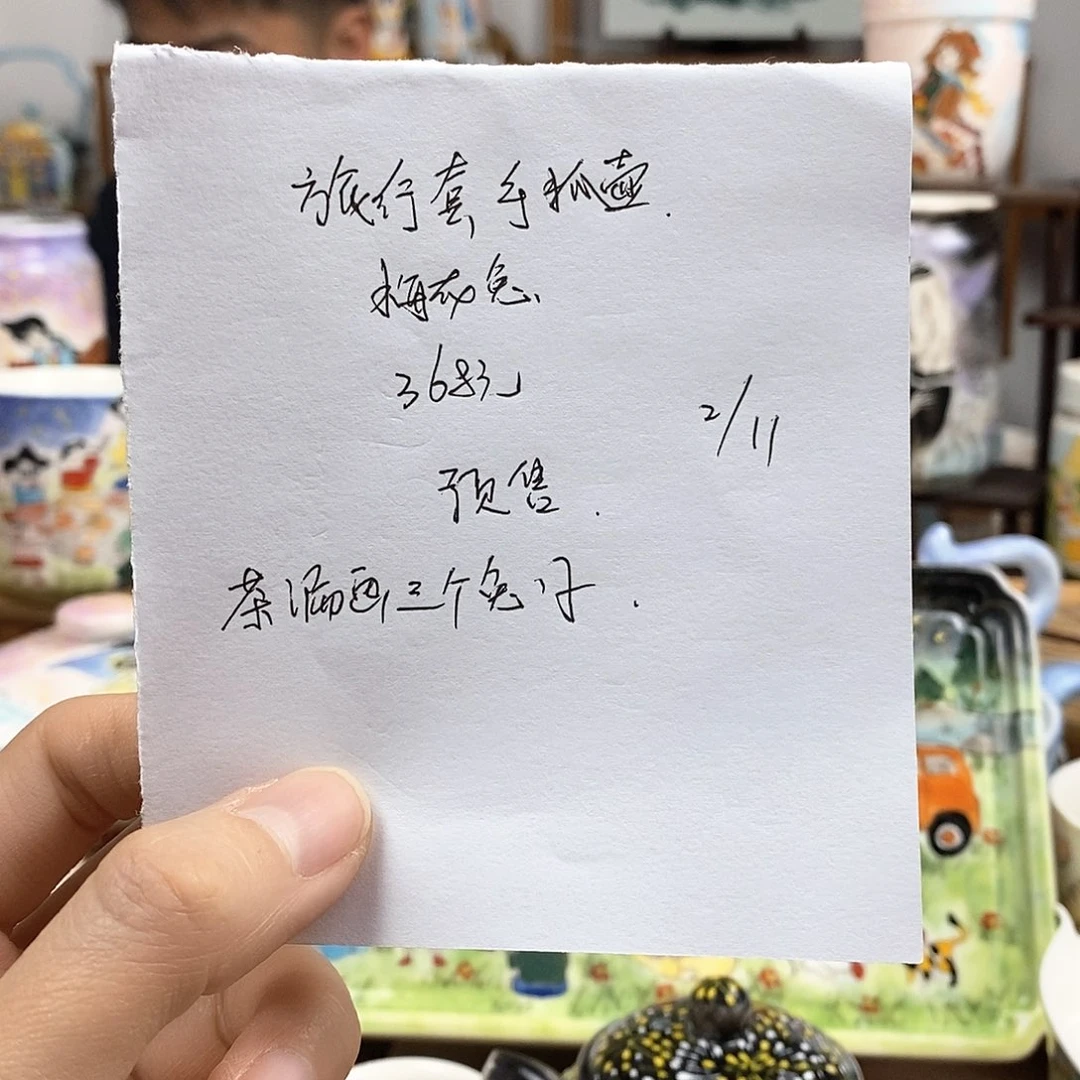 旅行套手抓壶.
梅花兔、
368元
2/11
预售.
茶漏画三个兔仔.